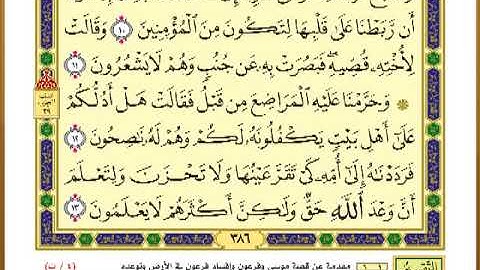 أَن رَّبَطْنَا عَلَىٰ قَلْبِهَا لِتَكُونَ مِنَ ٱلْمُؤْمِنِينَ ١٠ وَقَالَتْ
لِأُخْتِهِۦ قُصِّيهِ ۖ فَبَصُرَتْ بِهِۦ عَن جُنُبٍ وَهُمْ لَا يَشْعُرُونَ ١١
۞ وَحَرَّمْنَا عَلَيْهِ ٱلْمَرَاضِعَ مِن قَبْلُ فَقَالَتْ هَلْ أَدُلُّكُمْ
عَلَىٰٓ أَهْلِ بَيْتٍ يَكْفُلُونَهُۥ لَكُمْ وَهُمْ لَهُۥ نَٰصِحُونَ ١٢
فَرَدَدْنَٰهُ إِلَىٰٓ أُمِّهِۦ كَىْ تَقَرَّ عَيْنُهَا وَلَا تَحْزَنَ وَلِتَعْلَمَ
أَنَّ وَعْدَ ٱللَّهِ حَقٌّ وَلَٰكِنَّ أَكْثَرَهُمْ لَا يَعْلَمُونَ ١٣
٣٨٦
مقدمة عن قصة موسى وفرعون وإفساد فرعون في الأرض وتوعده